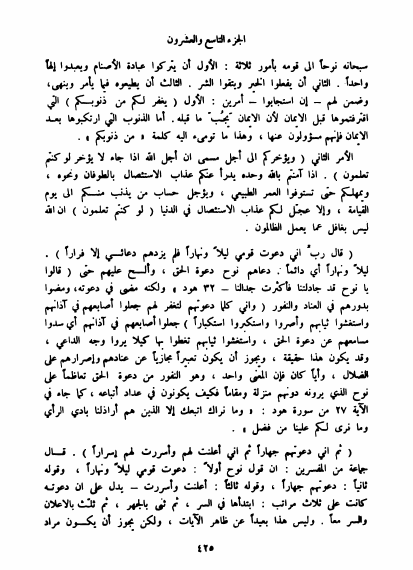 الجزء التاسع والعشرون
سبحانه نوحاً الى قومه بأمور ثلاثة : الأول أن يتركوا عبادة الأصنام ويعبدوا إلهاً
واحداً . الثاني أن يفعلوا الخير ويتقوا الشر . الثالث أن يطيعوه فيما يأمر وينهى،
وضمن لهم – إن استجابوا – أمرين : الأول ( يغفر لكم من ذنوبكم ) التي
اقترفتموها قبل الايمان لأن الايمان يَجُبّ ما قبله . أما الذنوب التي ارتكبوها بعد
الايمان فإنهم مسؤولون عنها ، وهذا ما تومىء اليه كلمة « من ذنوبكم » .
الأمر الثاني ( ويؤخركم الى أجل مسمى ان أجل الله اذا جاء لا يؤخر لو كنتم
تعلمون ) . اذا آمنتم بالله وحده يدرأ عنكم عذاب الاستئصال بالطوفان ونحوه ،
ويمهلكم حتى تستوفوا العمر الطبيعي ، ويؤجل حساب من يذنب منكم الى يوم
القيامة ، وإلا عجّل لكم عذاب الاستئصال في الدنيا ( لو كنتم تعلمون ) ان الله
ليس بغافل عما يعمل الظالمون .
( قال ربّ اني دعوت قومي ليلاً ونهاراً فلم يزدهم دعائي إلا فراراً ) .
ليلاً ونهاراً أي دائماً . دعاهم نوح دعوة الحق ، وألح عليهم حتى ( قالوا
يا نوح قد جادلتنا فأكثرت جدالنا – ٣٢ هود » ولكنه مضى في دعوته، ومضوا
بدورهم في العناد والنفور ( واني كلما دعوتهم لتغفر لهم جعلوا أصابعهم في آذانهم
واستغشوا ثيابهم وأصروا واستكبروا استكباراً ) جعلوا أصابعهم في آذانهم أي سدوا
مسامعهم عن دعوة الحق ، واستغشوا ثيابهم تغطوا بها كيلا يروا وجه الداعي ،
وقد يكون هذا حقيقة ، ويجوز أن يكون تعبيراً مجازياً عن عنادهم وإصرارهم على
الضلال ، وأياً كان فإن المعنى واحد ، وهو النفور من دعوة الحق تعاظماً على
نوح الذي يرونه دونهم منزلة ومقاماً فكيف يكونون في عداد أتباعه ، كما جاء في
الآية ٢٧ من سورة هود : « وما نراك اتبعك إلا الذين هم أراذلنا بادي الرأي
وما نرى لكم علينا من فضل » .
( ثم اني دعوتهم جهاراً ثم اني أعلنت لهم وأسررت لهم إسراراً ) . قال
جماعة من المفسرين : ان قول نوح أولاً : دعوت قومي ليلاً ونهاراً ، وقوله
ثانياً : دعوتهم جهاراً ، وقوله ثالثاً : أعلنت وأسررت – يدل على ان دعوته
كانت على ثلاث مراتب : ابتدأها في السر ، ثم ثنى بالجهر ، ثم ثلث بالاعلان
والسر معاً . وليس هذا بعيداً عن ظاهر الآيات ، ولكن يجوز أن يكون مراد
٤٢٥